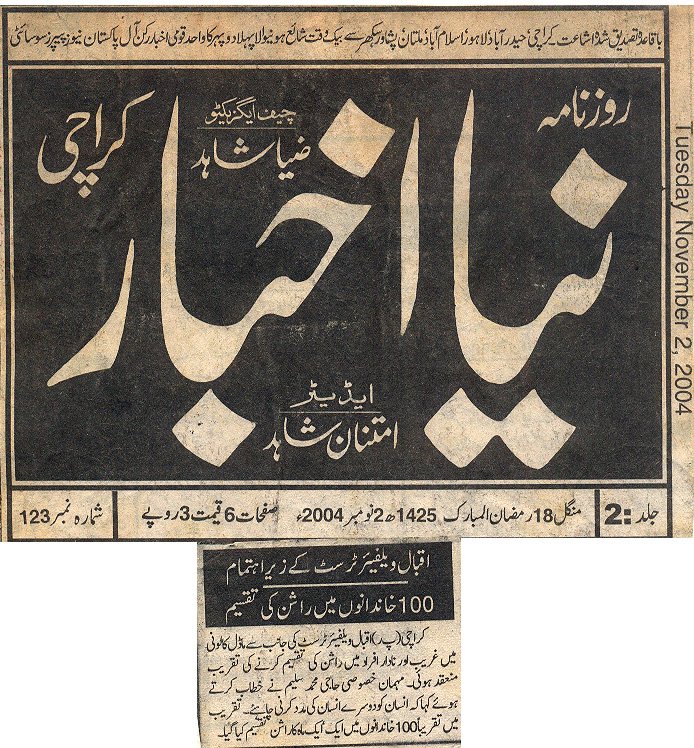 باقاعدہ تصدیق شدہ اشاعت کراچی، حیدرآباد، لاہور، اسلام آباد، ملتان، پشاور، سکھر سے بیک وقت شائع ہونیوالا پہلا دوپہر کا واحد قومی اخبار رکن آل پاکستان نیوز پیپرز سوسائٹی
روزنامہ
نیا اخبار
کراچی
چیف ایگزیکٹو
ضیا شاہد
ایڈیٹر
امتنان شاہد
Tuesday November 2, 2004
جلد :2 منگل 18 رمضان المبارک 1425ھ 2 نومبر 2004ء صفحات 6 قیمت 3 روپے شمارہ نمبر 123
اقبال ویلفیئر ٹرسٹ کے زیر اہتمام
100 خاندانوں میں راشن کی تقسیم
کراچی (پ ر) اقبال ویلفیئر ٹرسٹ کی جانب سے ماڈل کالونی
میں غریب اور نادار افراد میں راشن کی تقسیم کرنے کی تقریب
منعقد ہوئی۔ مہمان خصوصی حاجی محمد سلیم نے خطاب کرتے
ہوئے کہا کہ انسان کو دوسرے انسان کی مدد کرنی چاہئے۔ تقریب
میں تقریباً 100 خاندانوں میں ایک ایک ماہ کا راشن تقسیم کیا گیا۔